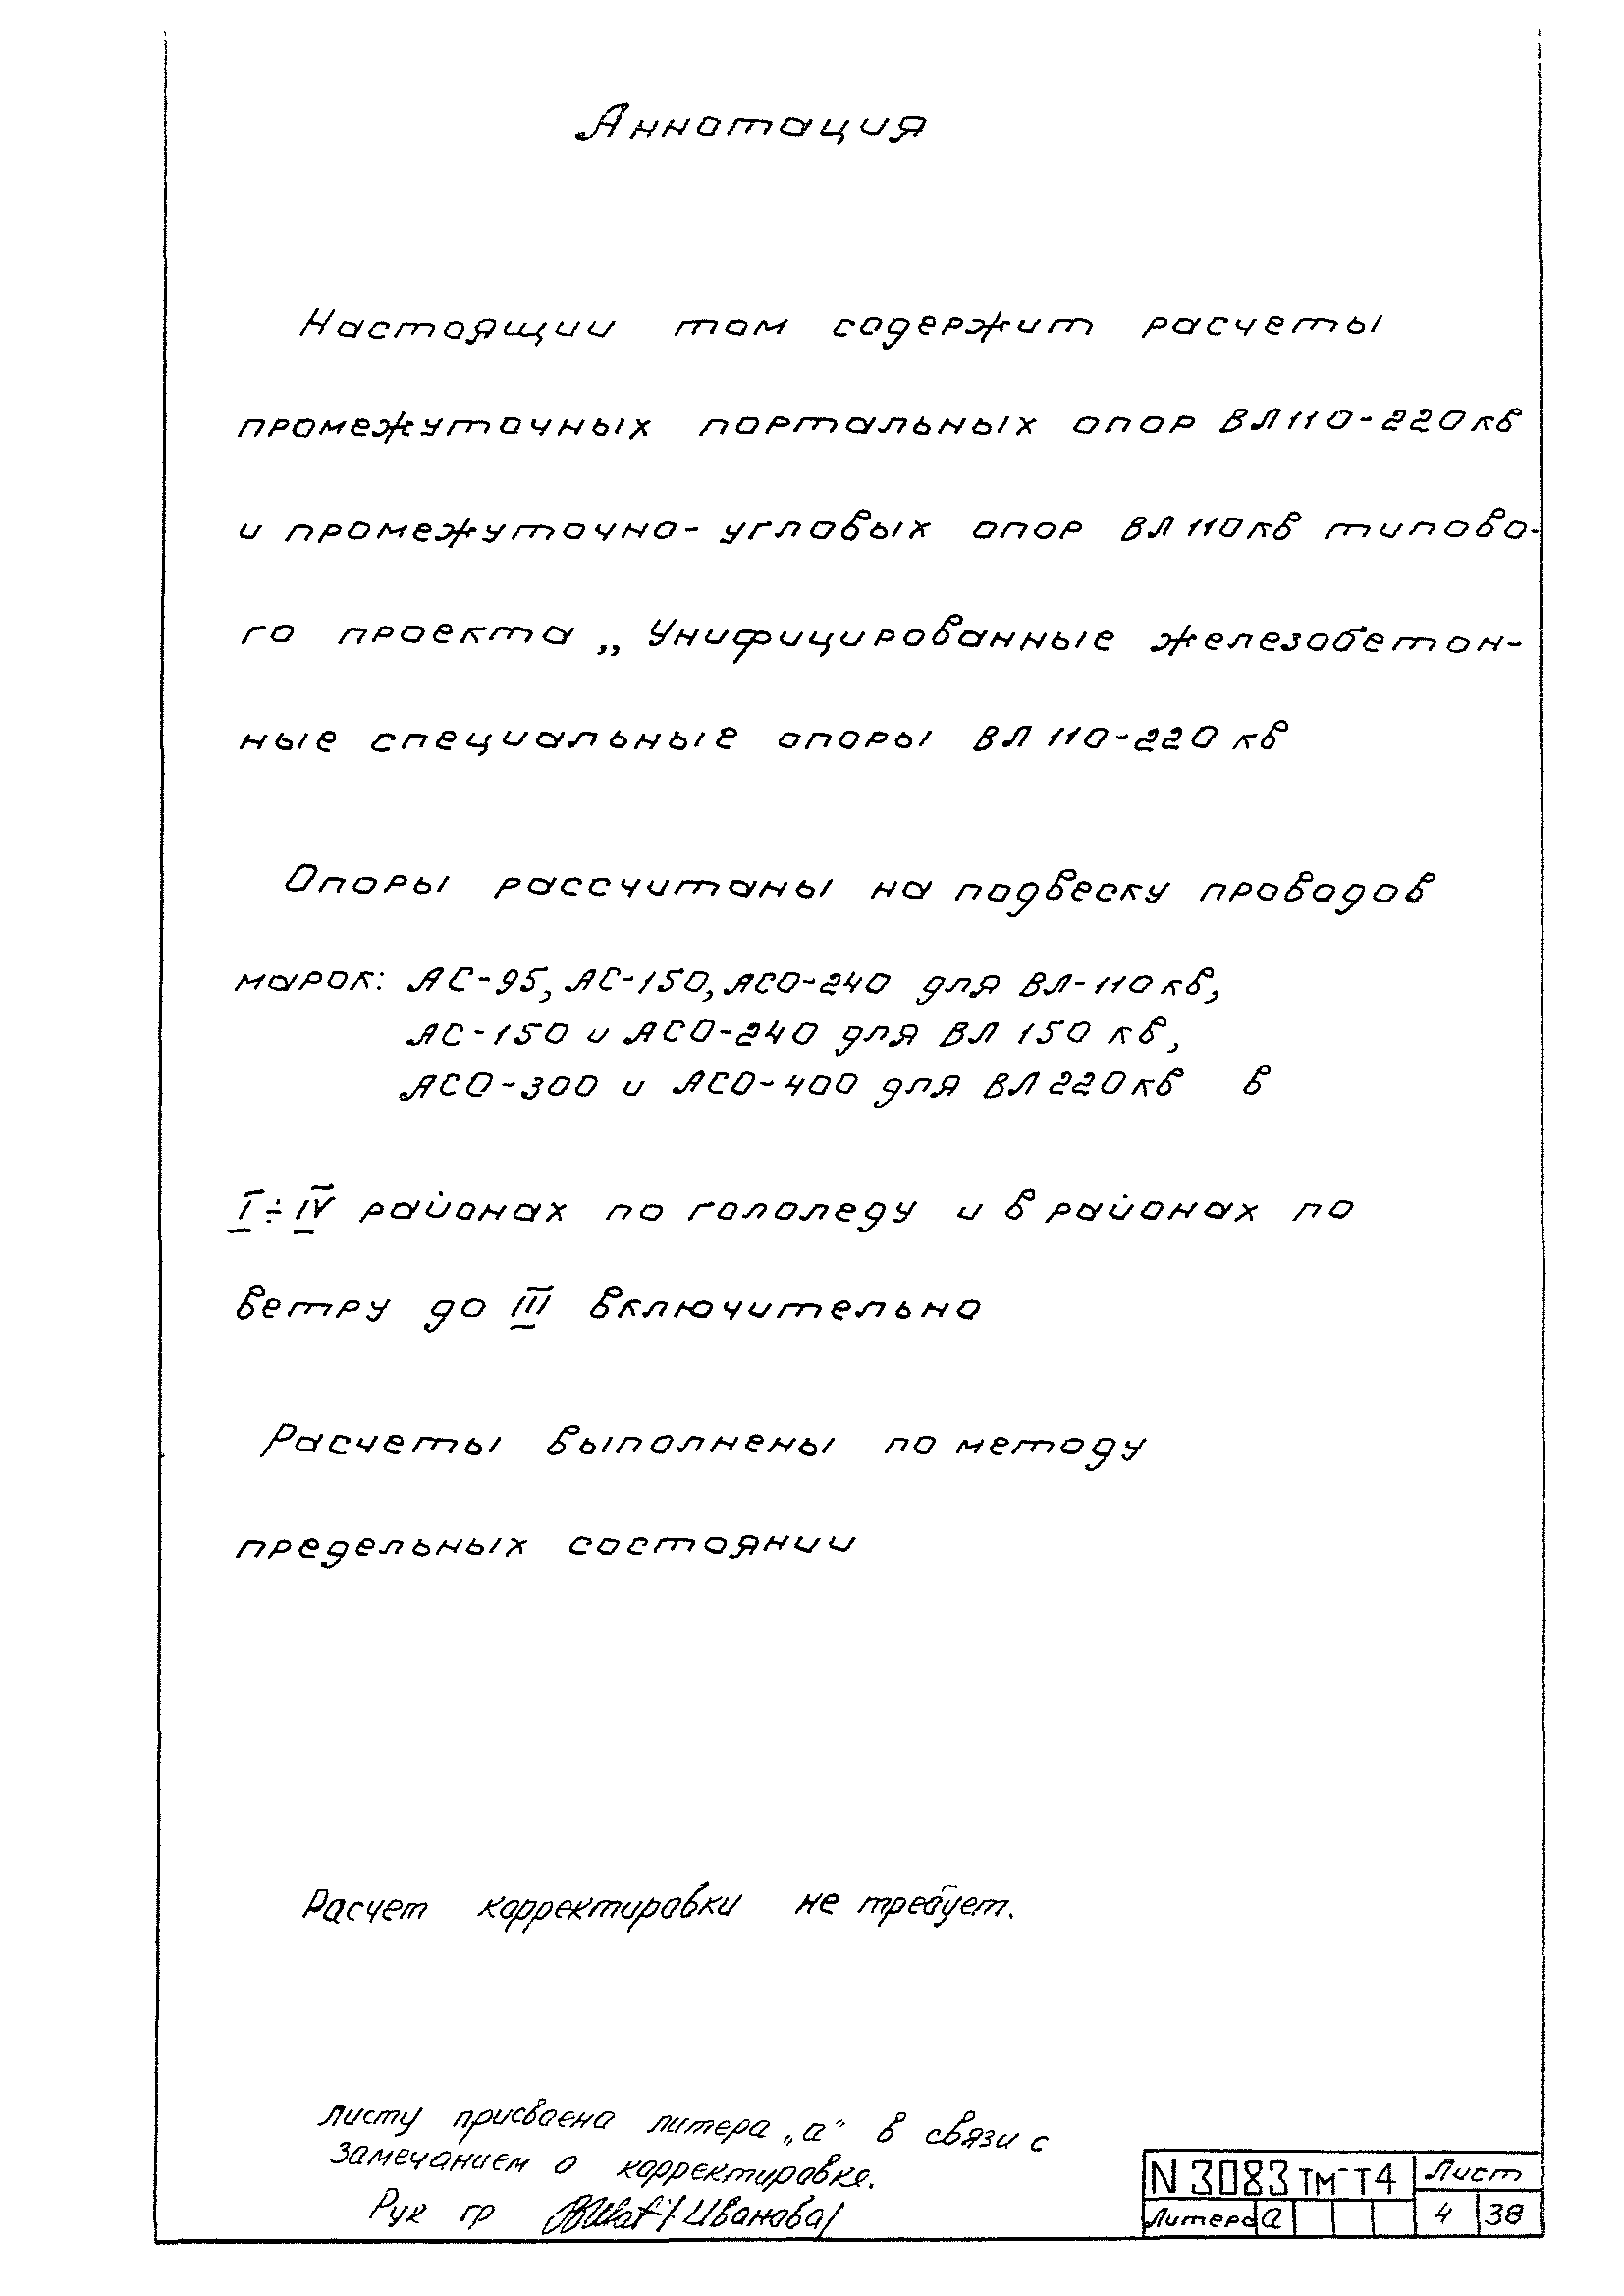 Аннотация
Настоящии том содержит расчеты
промежуточных портальных опор ВЛ 110-220 кв
и промежуточно-угловых опор ВЛ 110 кв типово-
го проекта „Унифицированные железобетон-
ные специальные опоры ВЛ 110-220 кв
Опоры рассчитаны на подвеску проводов
марок: АС-95, АС-150, АСО-240 для ВЛ-110 кв,
АС-150 и АСО-240 для ВЛ 150 кв,
АСО-300 и АСО-400 для ВЛ 220 кв в
I÷IV районах по гололеду и в районах по
ветру до III включительно
Расчеты выполнены по методу
предельных состоянии
Расчет корректировки не требует.
Листу присвоена литера „а" в связи с
замечанием о корректировке.
Рук гр /Иванова/
N 3083тм-Т4 Лист
Литера а 4 38